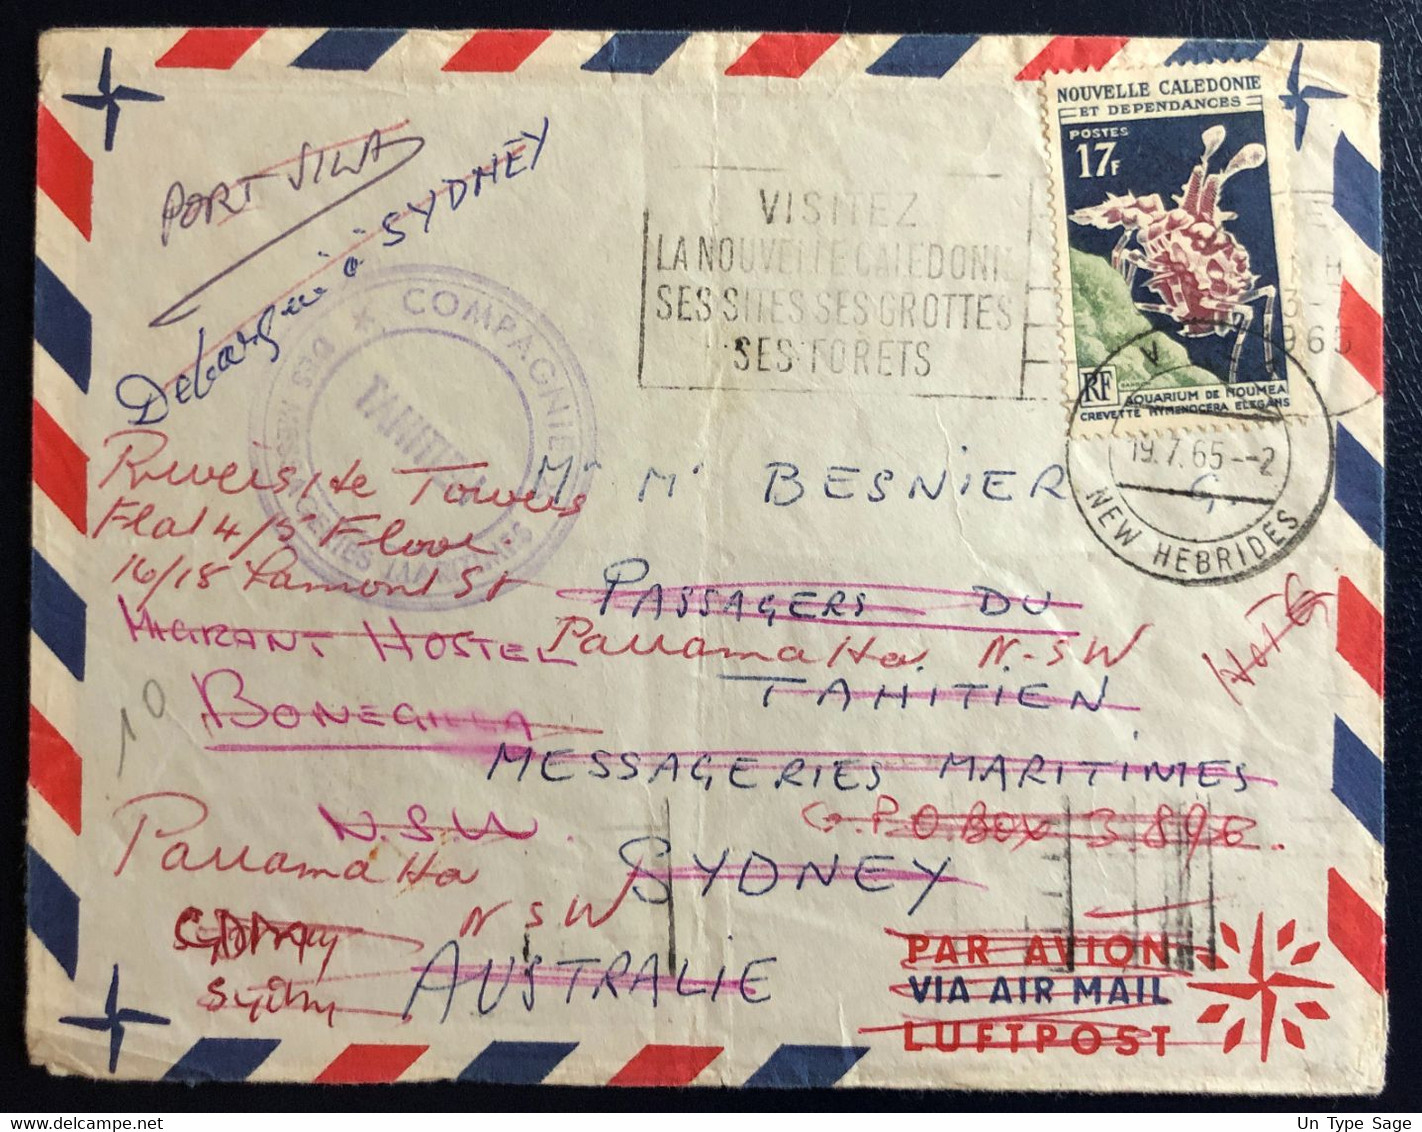 PORT VILA
Debarqué à SYDNEY
VISITEZ
LA NOUVELLE CALEDONIE
SES SITES SES GROTTES
SES FORETS
NOUVELLE CALEDONIE
ET DEPENDANCES
POSTES
17F
RF
AQUARIUM DE NOUMEA
CREVETTE HYMENOCERA ELEGANS
1965
19.7.65--2
NEW HEBRIDES
COMPAGNIE DES MESSAGERIES MARITIMES
TAHITIEN
Mr Mr BESNIER
PASSAGERS DU
TAHITIEN
MESSAGERIES MARITIMES
G.P.O. BOX 3890.
SYDNEY
AUSTRALIE
Riverside Towers
Flat 4/5 Floor
16/18 Lamont St
Parramatta N.S.W
MIGRANT HOSTEL
BONEGILLA
N.S.W.
Parramatta
NSW
Sydney
10
PAR AVION
VIA AIR MAIL
LUFTPOST
Un Type Sage